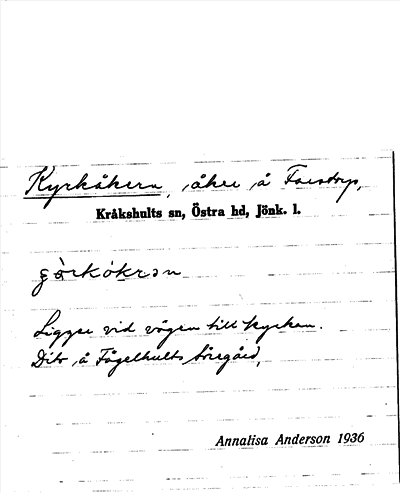 Kyrkåkern, åker å Farstorp,
Kråkshults sn, Östra hd, Jönk. l.
Ligger vid vägen till kyrkan.
Dito å Fågelhults Sörgård,
Annalisa Anderson 1936